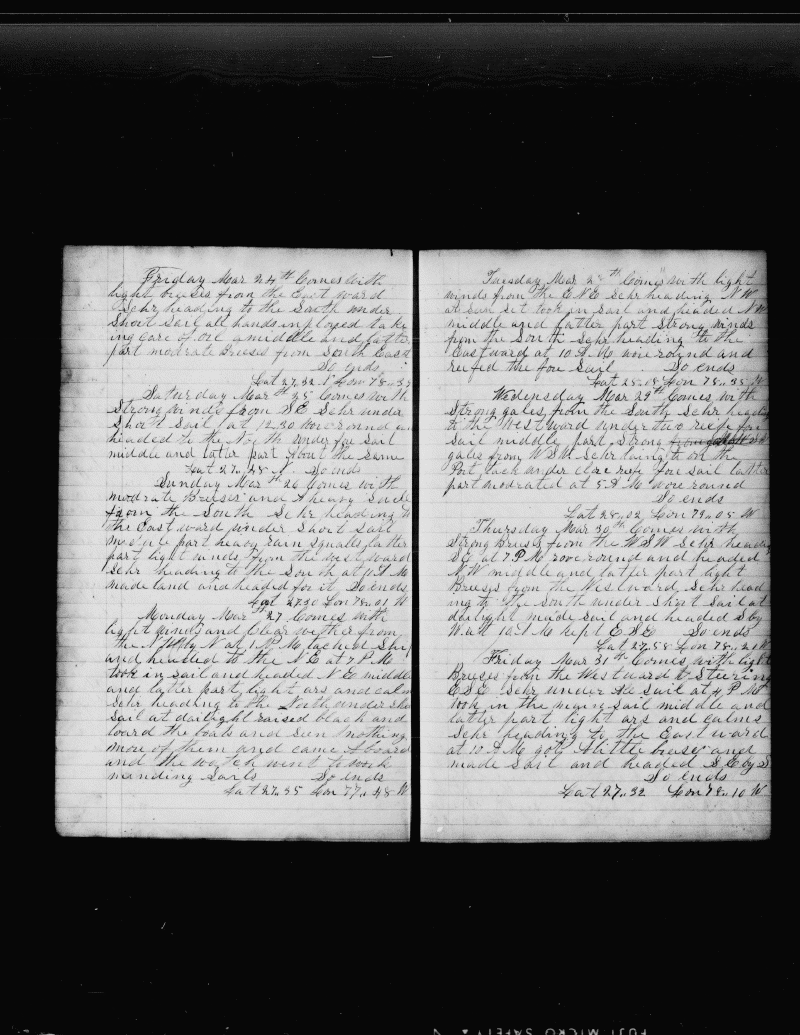 Friday Mar 24th Comes with
light breses from the East ward
Schr heading to the South under
Short Sail all hands imployed take
ing Care of Oil middle and latter
part modrate Breses from South East
So ends
Lat 27,,32 Lon 78,,35
Saturday Mar 25th Comes with
Strong winds from SE Schr under
Short Sail at 12.30 wore round
headed to the North under foe sail
middle and later part fout the same
Lat 27,,48 N So ends
Sunday Mar 26th Comes with
modrate Breeses and A heavy Swell
from the South Schr heading to
the East ward under Short Sail
part heavy rain squalls latter
part light winds from the west ward
Schr heading to the South at
made land and headed for it So ends
Lat 27,,30 Lon 78,,01 W
Monday Mar 27th Comes with
light winds and Clear wether from
the N by N at 1 P M tacked Ship
and headed to the NE at 7 P M
took in sail and headed NE middle
and latter part light ars and calm
Schr heading to the North under
Sail at dailight raised black and
loard the boats and seen nothing
more of them and came Aboard
and the watch went to work
manding Sails So ends
Lat 27,,35 Lon 77,,48 W
Tuesday Mar th Comes with light
winds from the ENE Schr heading NW
at sun set took in sail and headed NW
middle and latter part Strong winds
from the South Schr heading to the
Eastward at 10 A M wore round and
reefed the foe Sail So ends
Lat 28,,18 Lon 78,,35 W
Wedensday Mar 29th Comes with
Strong gales from the South Schr heading
to the Westward under two reefe foe
sail middle part Strong
gales from WSW Schr laing to on the
Port tack under Close reefe foe sail latter
part modrated at 5 A M wore round
So ends
Lat 28,,02 Lon 79,,05 W
Thursday Mar 30th Comes with
Strong Breses from the WSW Schr heading
at 7 P M wore round and headed
NW middle and latter part light
Breeses from the Westward Schr head
ing to the South under Short Sail at
dailight made sail and headed S by
W at 10 A M kept ESE So ends
Lat 27,,58 Lon 78,,21 W
Friday Mar 31th Comes with light
Breses from the Westward Steering
ESE Schr under All sail at 4 P M
took in the main sail middle and
latter part light ars and calms
Schr heading to the East ward
at 10 A M got A little brese and
made sail and headed SE by S
So ends
Lat 27,,32 Lon 78,,10 W
FUJI MICRO SAFETY